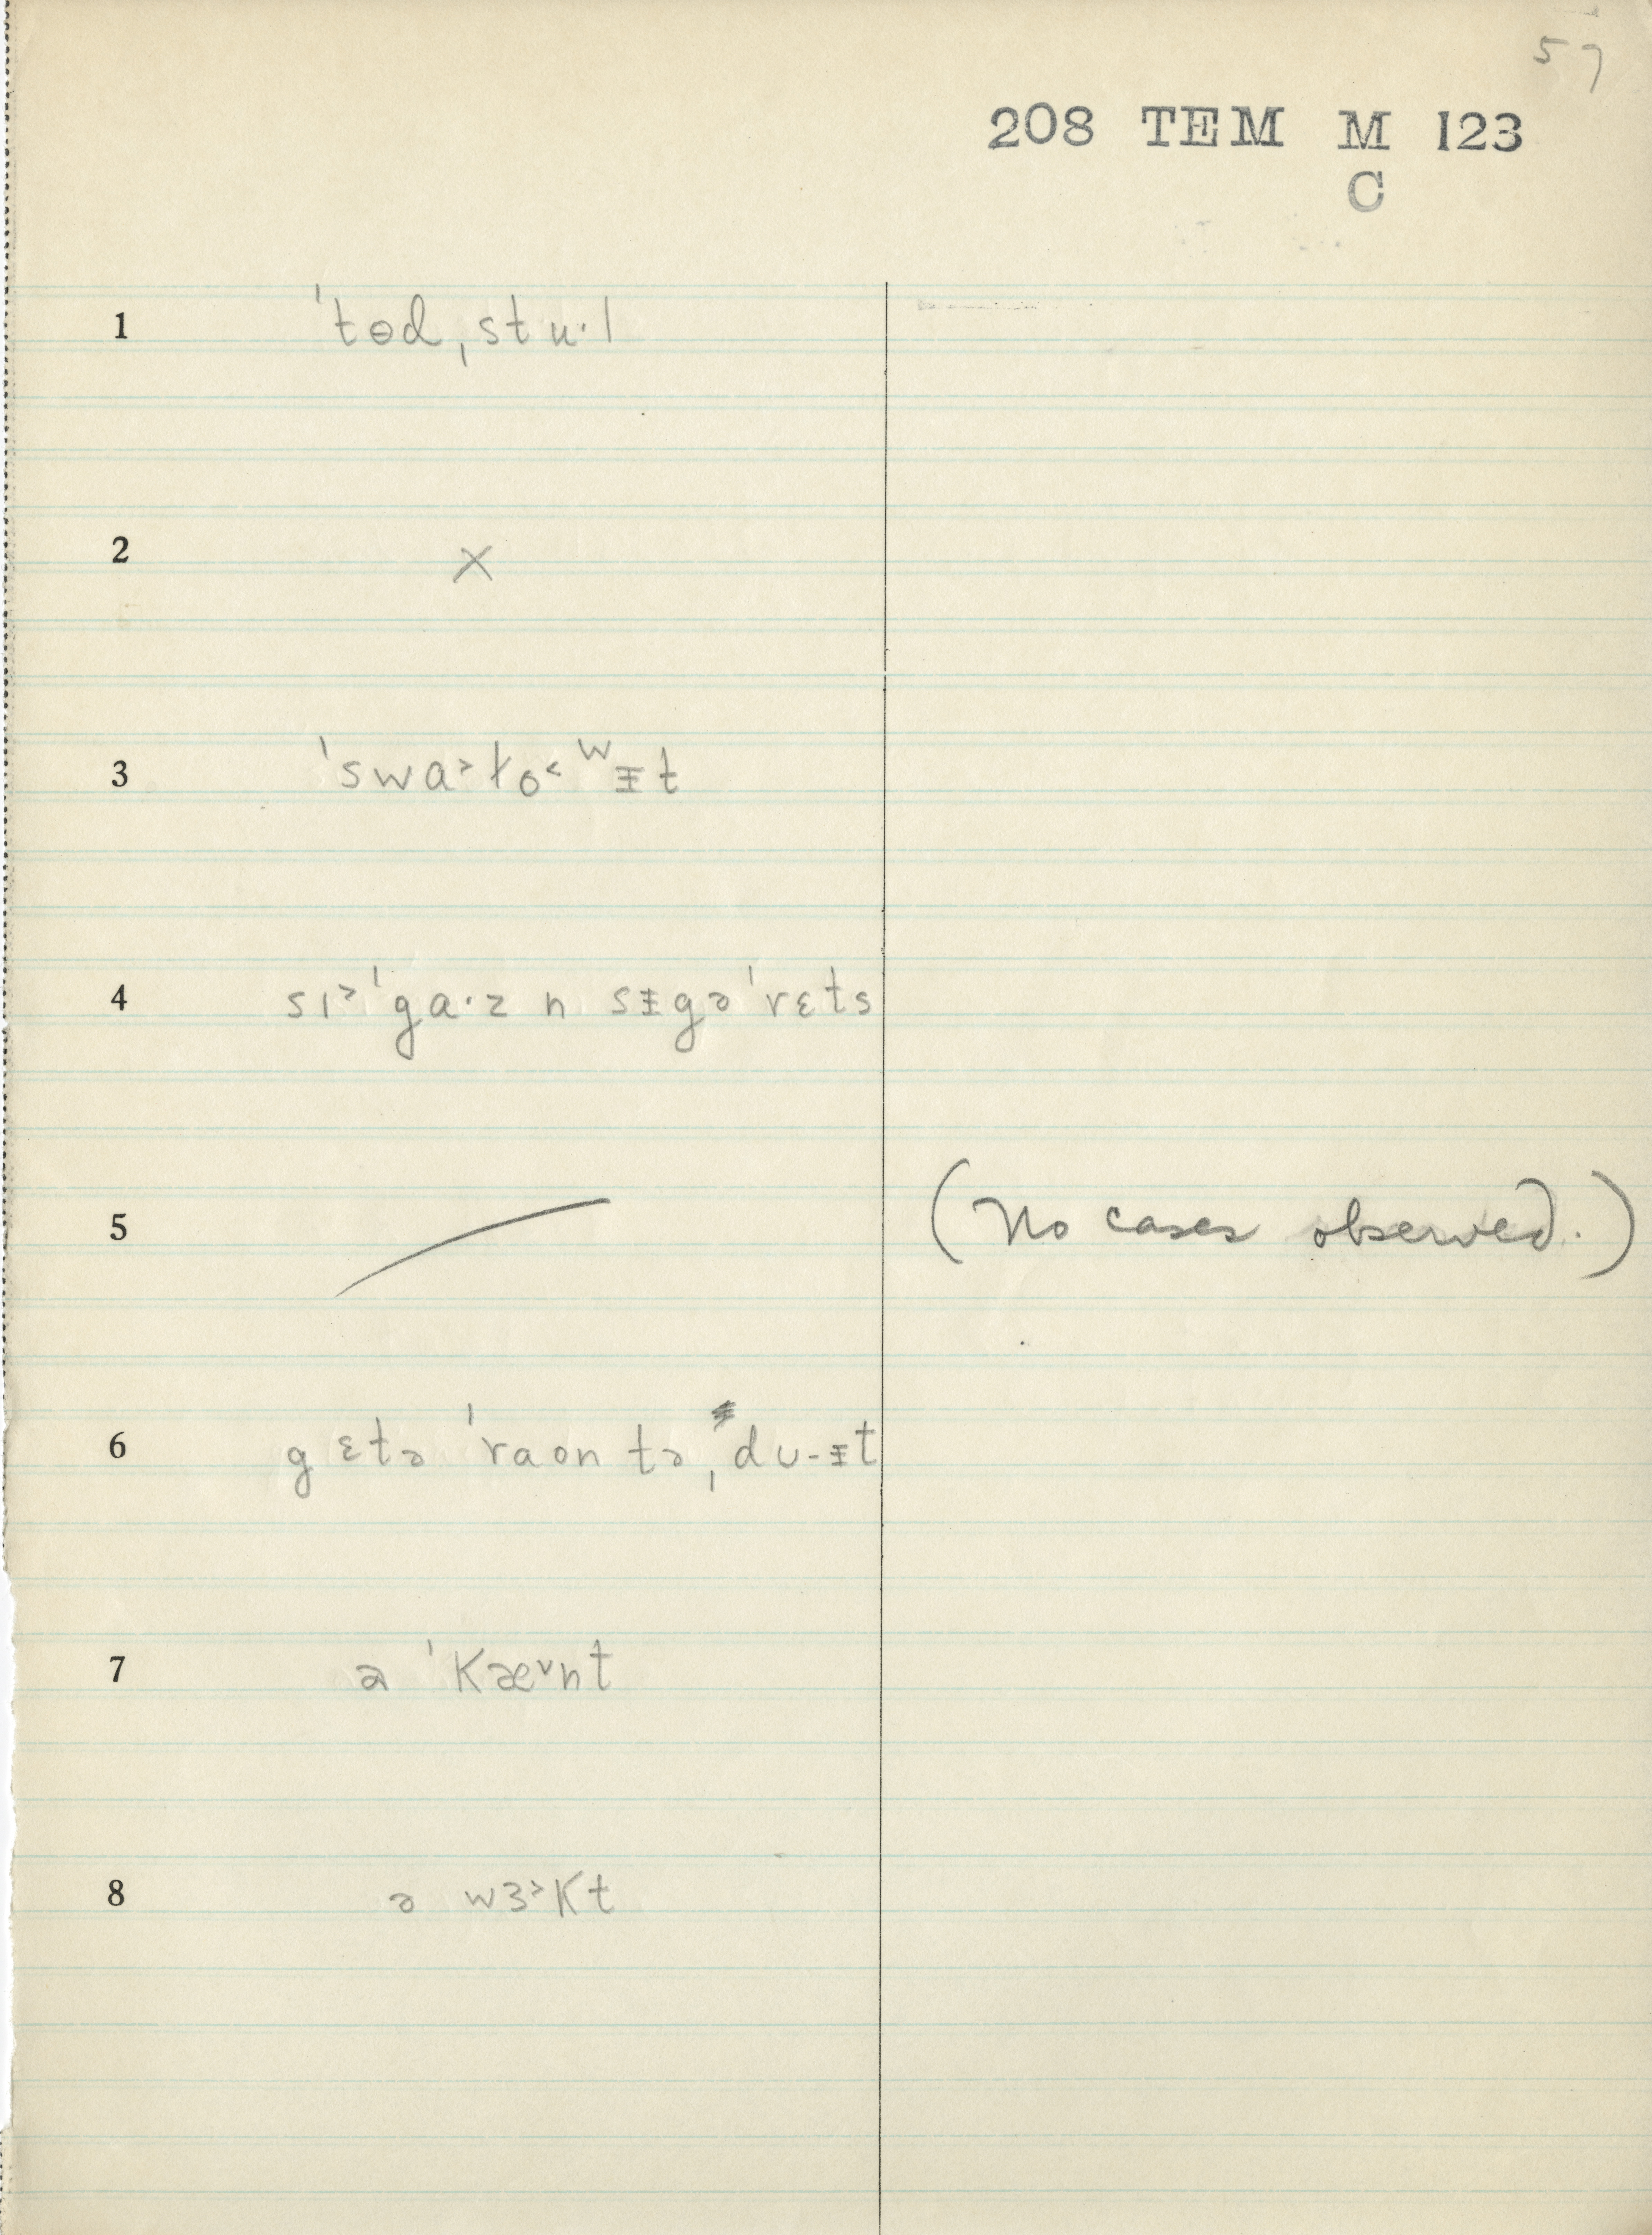 57
208 TEM M 123
C
1 ˈtɵd ˌstuˑl
2 X
3 ˈswa˃ɫo˂ʷᵻt
4 sɪ˃ˈgaˑz n sᵻgəˈrɛts
5 (No cases observed.)
6 gɛtə ˈraʊn tə ˌdu-ᵻt
7 ə ˈkæ˅nt
8 ə wɜ˃kt